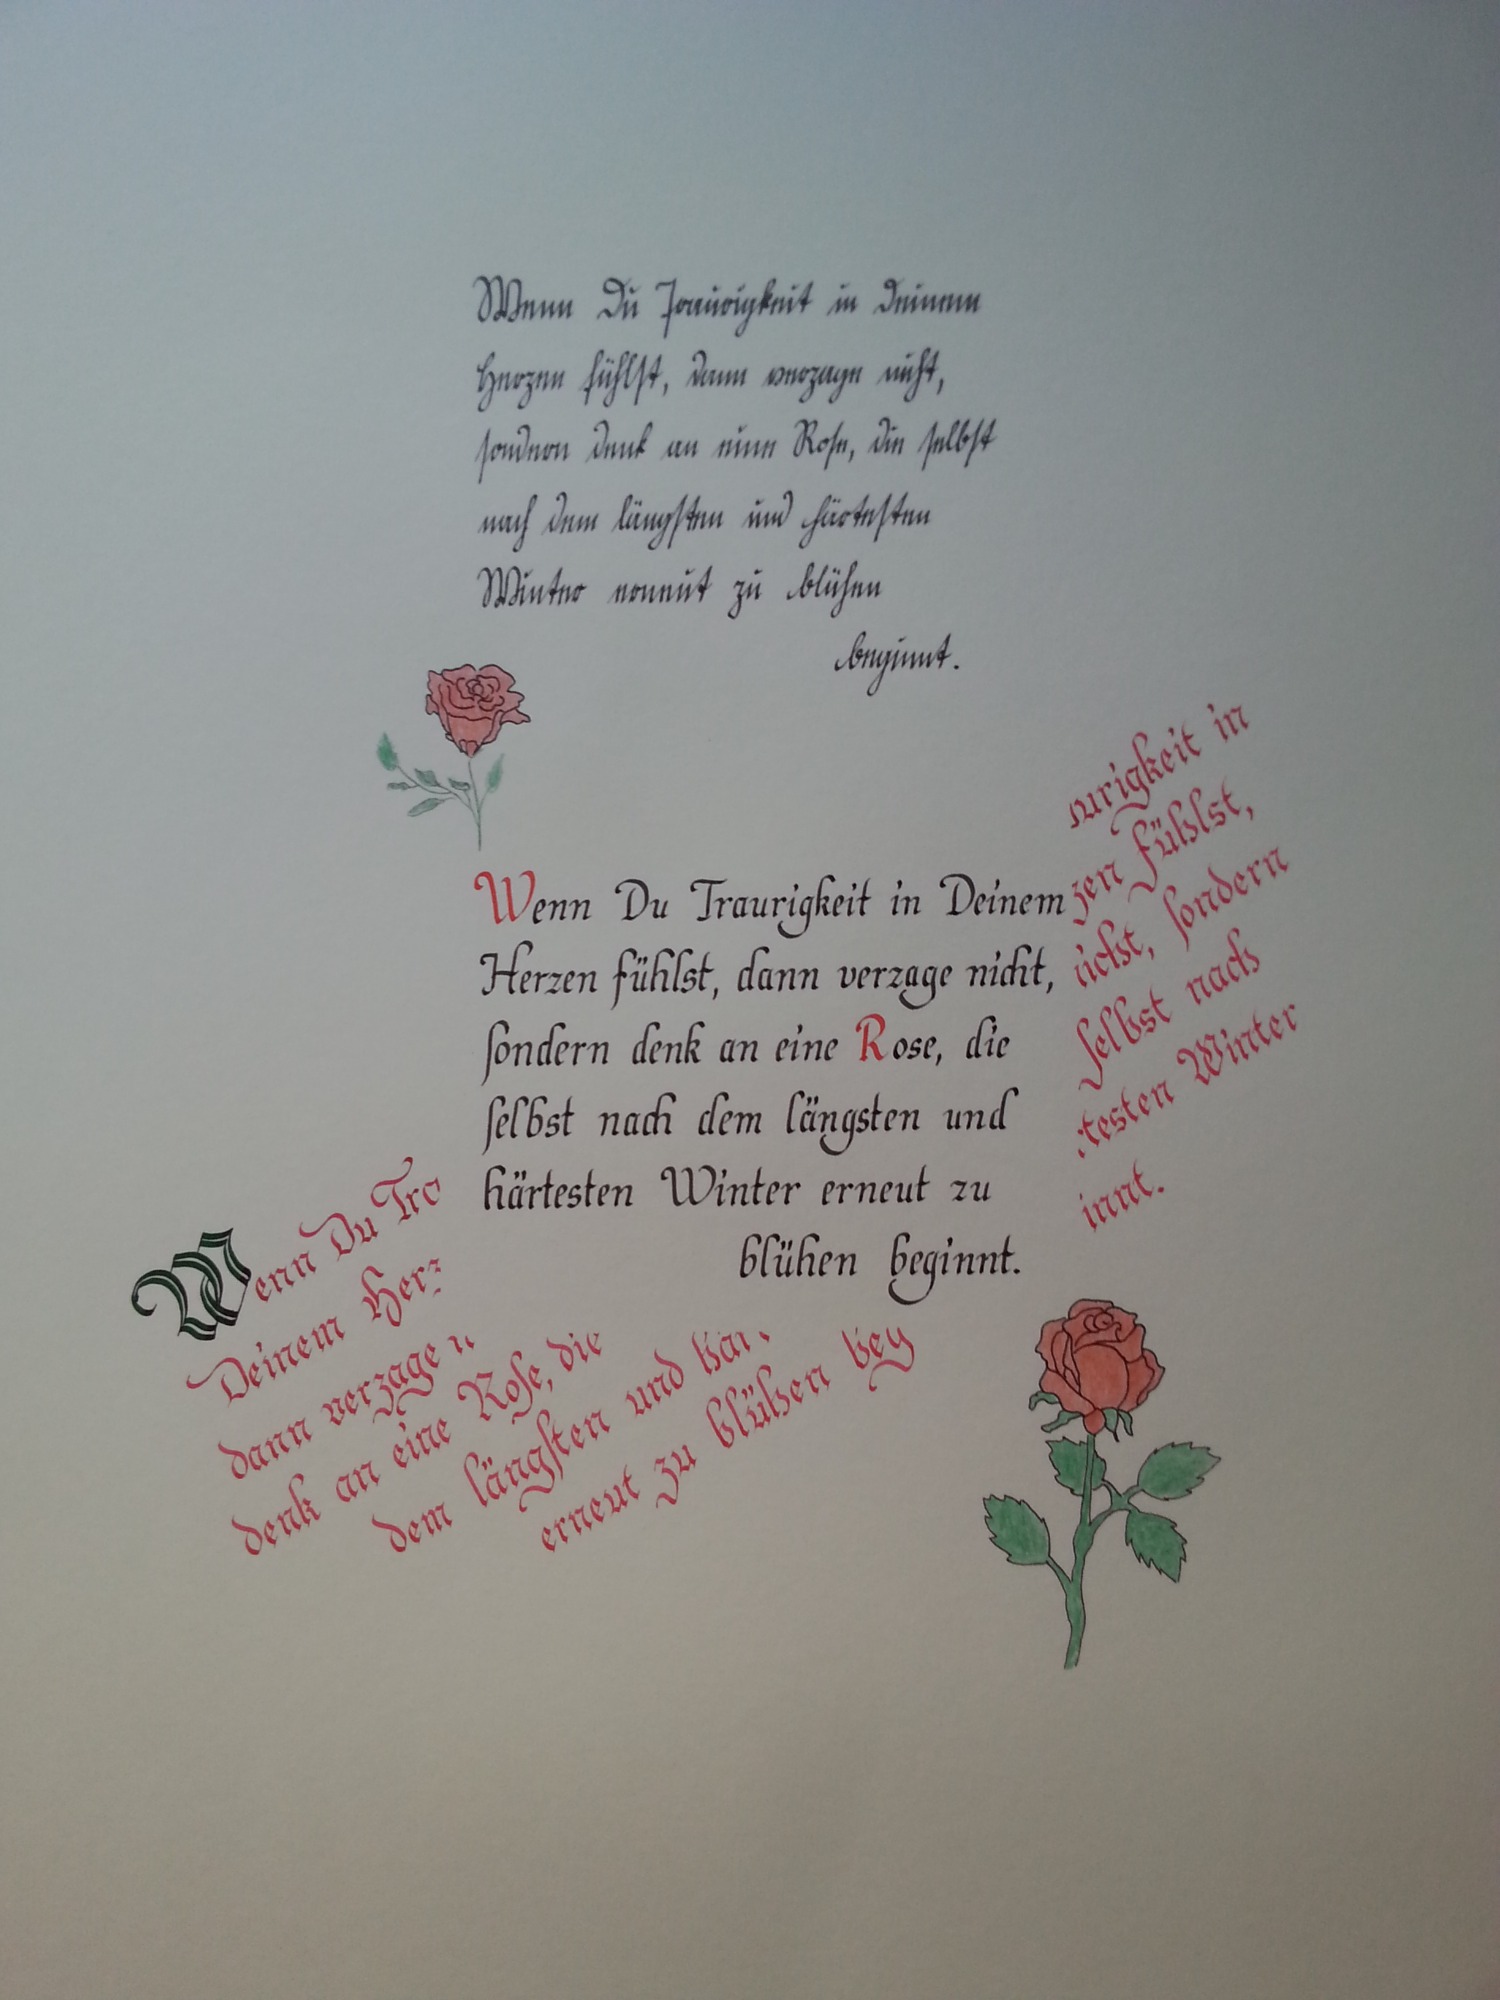 Wenn Du Traurigkeit in Deinem
Herzen fühlst, dann verzage nicht,
sondern denk an eine Rose, die selbst
nach dem längsten und härtesten
Winter erneut zu blühen
beginnt.
Wenn Du Traurigkeit in Deinem
Herzen fühlst, dann verzage nicht,
ſondern denk an eine Rose, die
ſelbst nach dem längsten und
härtesten Winter erneut zu
blühen beginnt.
Wenn Du Tra urigkeit in
Deinem Herz zen fühlst,
dann verzage n icht, ſondern
denk an eine Roſe, die ſelbst nach
dem längſten und här testen Winter
erneut zu blühen beg innt.